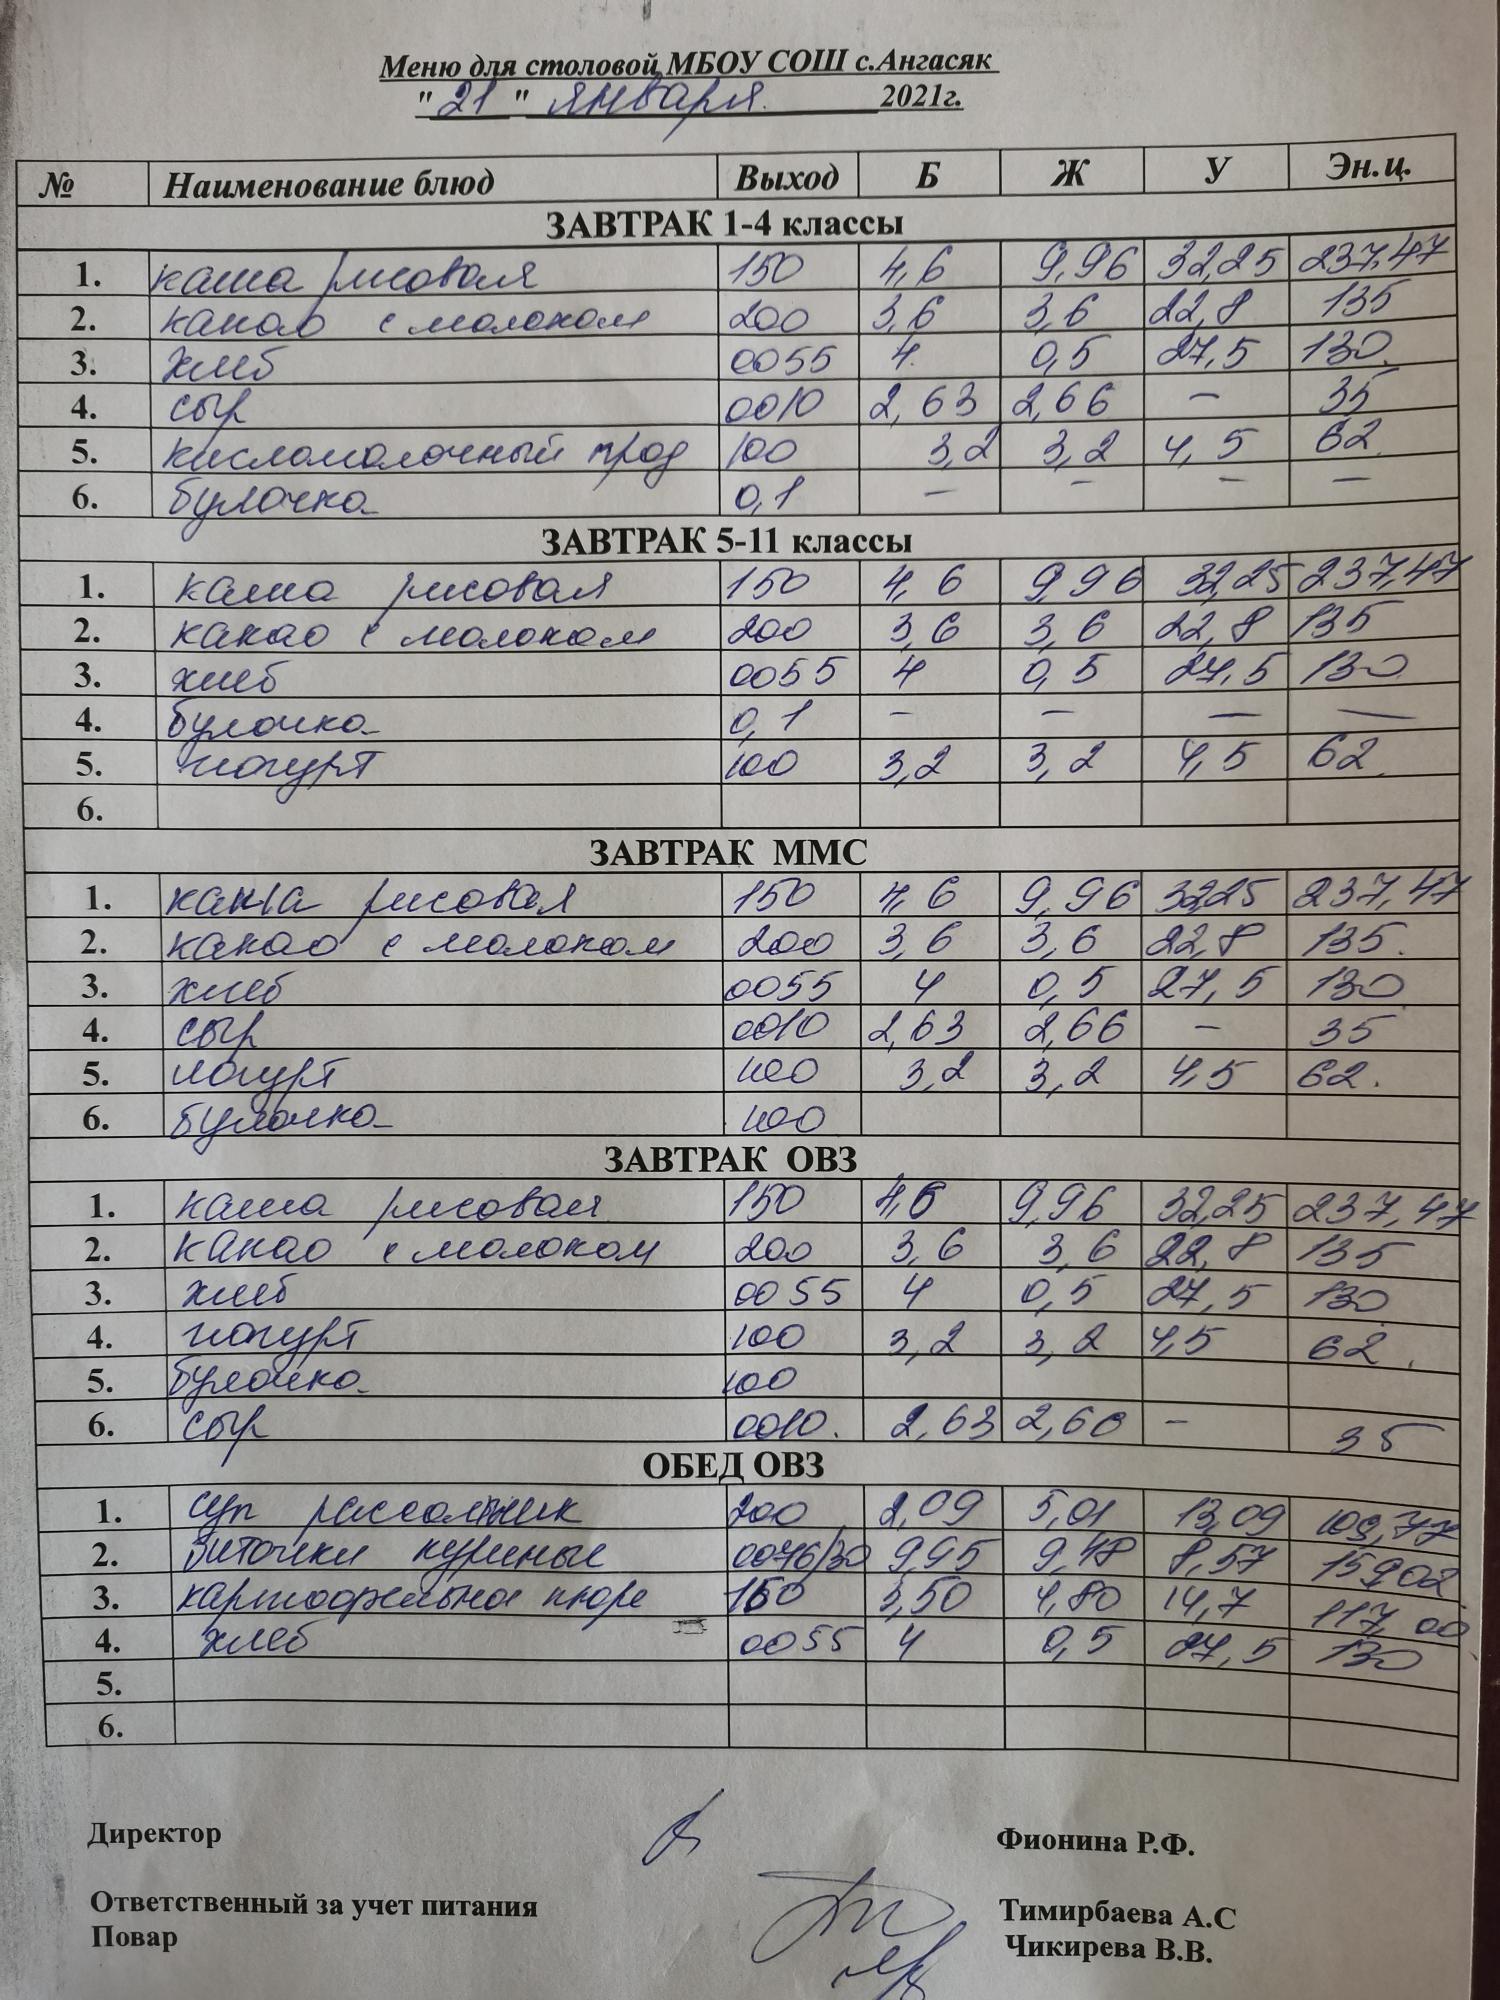 Меню для столовой МБОУ СОШ с.Ангасяк
"21" января 2021г.
№ Наименование блюд Выход Б Ж У Эн.ц.
ЗАВТРАК 1-4 классы
1. каша рисовая 150 4,6 9,96 32,25 237,47
2. какао с молоком 200 3,6 3,6 22,8 135
3. хлеб 0055 4 0,5 27,5 130
4. сыр 0010 2,63 2,66 - 35
5. кисломолочный прод 100 3,2 3,2 4,5 62
6. булочка 0,1 - - - -
ЗАВТРАК 5-11 классы
1. каша рисовая 150 4,6 9,96 32,25 237,47
2. какао с молоком 200 3,6 3,6 22,8 135
3. хлеб 0055 4 0,5 27,5 130
4. булочка 0,1 - - - -
5. йогурт 100 3,2 3,2 4,5 62
6.
ЗАВТРАК ММС
1. каша рисовая 150 4,6 9,96 32,25 237,47
2. какао с молоком 200 3,6 3,6 22,8 135
3. хлеб 0055 4 0,5 27,5 130
4. сыр 0010 2,63 2,66 - 35
5. йогурт 100 3,2 3,2 4,5 62
6. булочка 100
ЗАВТРАК ОВЗ
1. каша рисовая 150 4,6 9,96 32,25 237,47
2. какао с молоком 200 3,6 3,6 22,8 135
3. хлеб 0055 4 0,5 27,5 130
4. йогурт 100 3,2 3,2 4,5 62
5. булочка 100
6. сыр 0010 2,63 2,66 - 35
ОБЕД ОВЗ
1. суп рассольник 200 2,09 5,01 13,09 109,77
2. биточки куриные 0076/30 9,95 9,48 8,57 159,02
3. картофельное пюре 150 3,50 4,80 14,7 117,00
4. хлеб 0055 4 0,5 27,5 130
5.
6.
Директор Фионина Р.Ф.
Ответственный за учет питания Тимирбаева А.С
Повар Чикирева В.В.